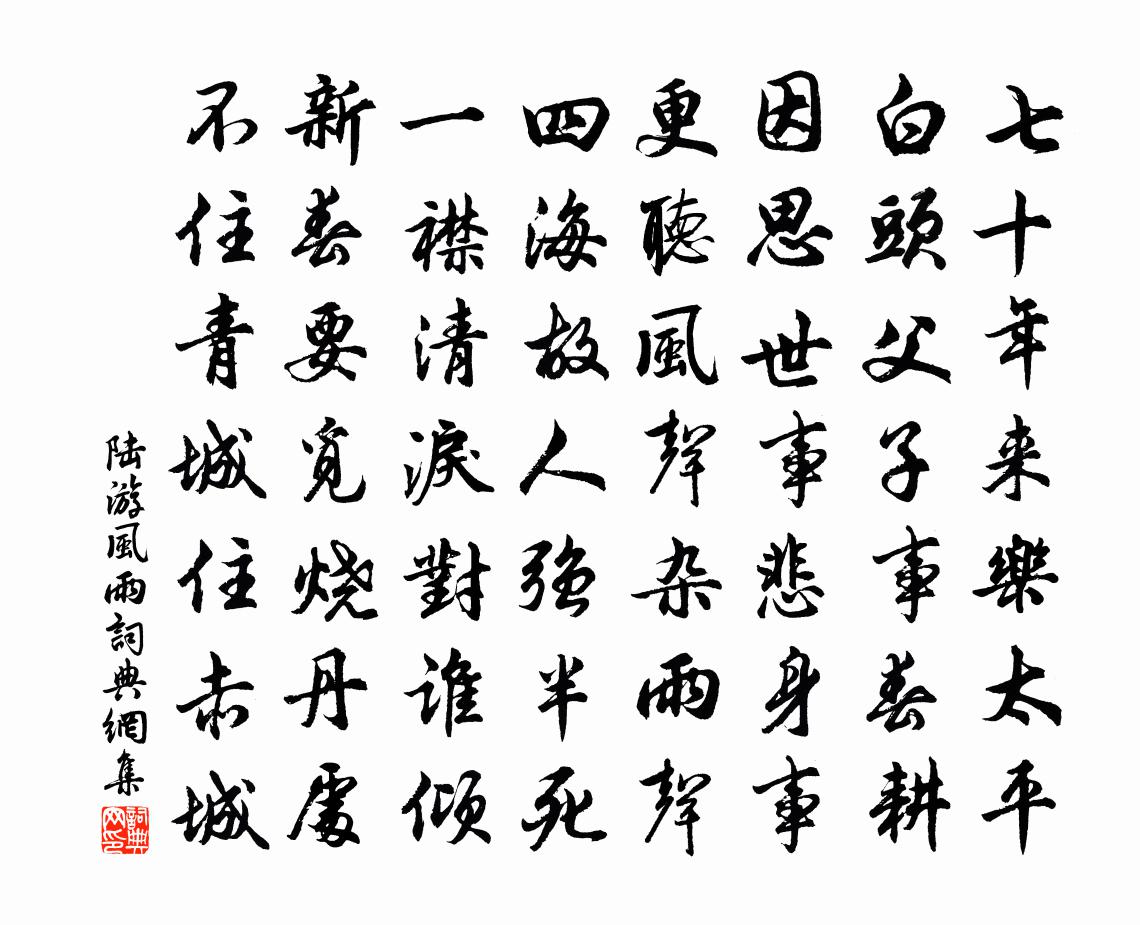 七十年来樂太平
白頭父子事春耕
因思世事悲身事
更聽風聲杂雨聲
四海故人强半死
一襟清淚對谁傾
新春要覓烧丹處
不住青城住赤城
陆游風雨詞典網集
詞典网印